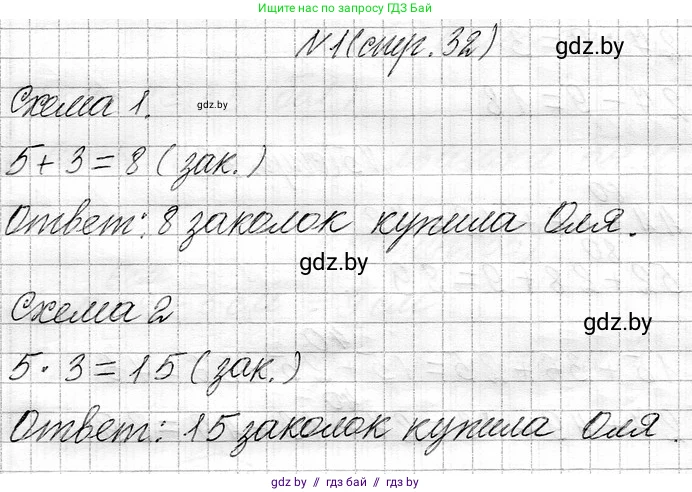 Ищите нас по запросу ГДЗ Бай
№1(стр. 32)
gdz.by
Схема 1.
gdz.by
5 + 3 = 8 (зак.)
Ответ: 8 заколок купила Оля.
gdz.by
Схема 2
gdz.by
5 · 3 = 15 (зак.)
Ответ: 15 заколок купила Оля.
gdz.by // гдз бай // gdz.by